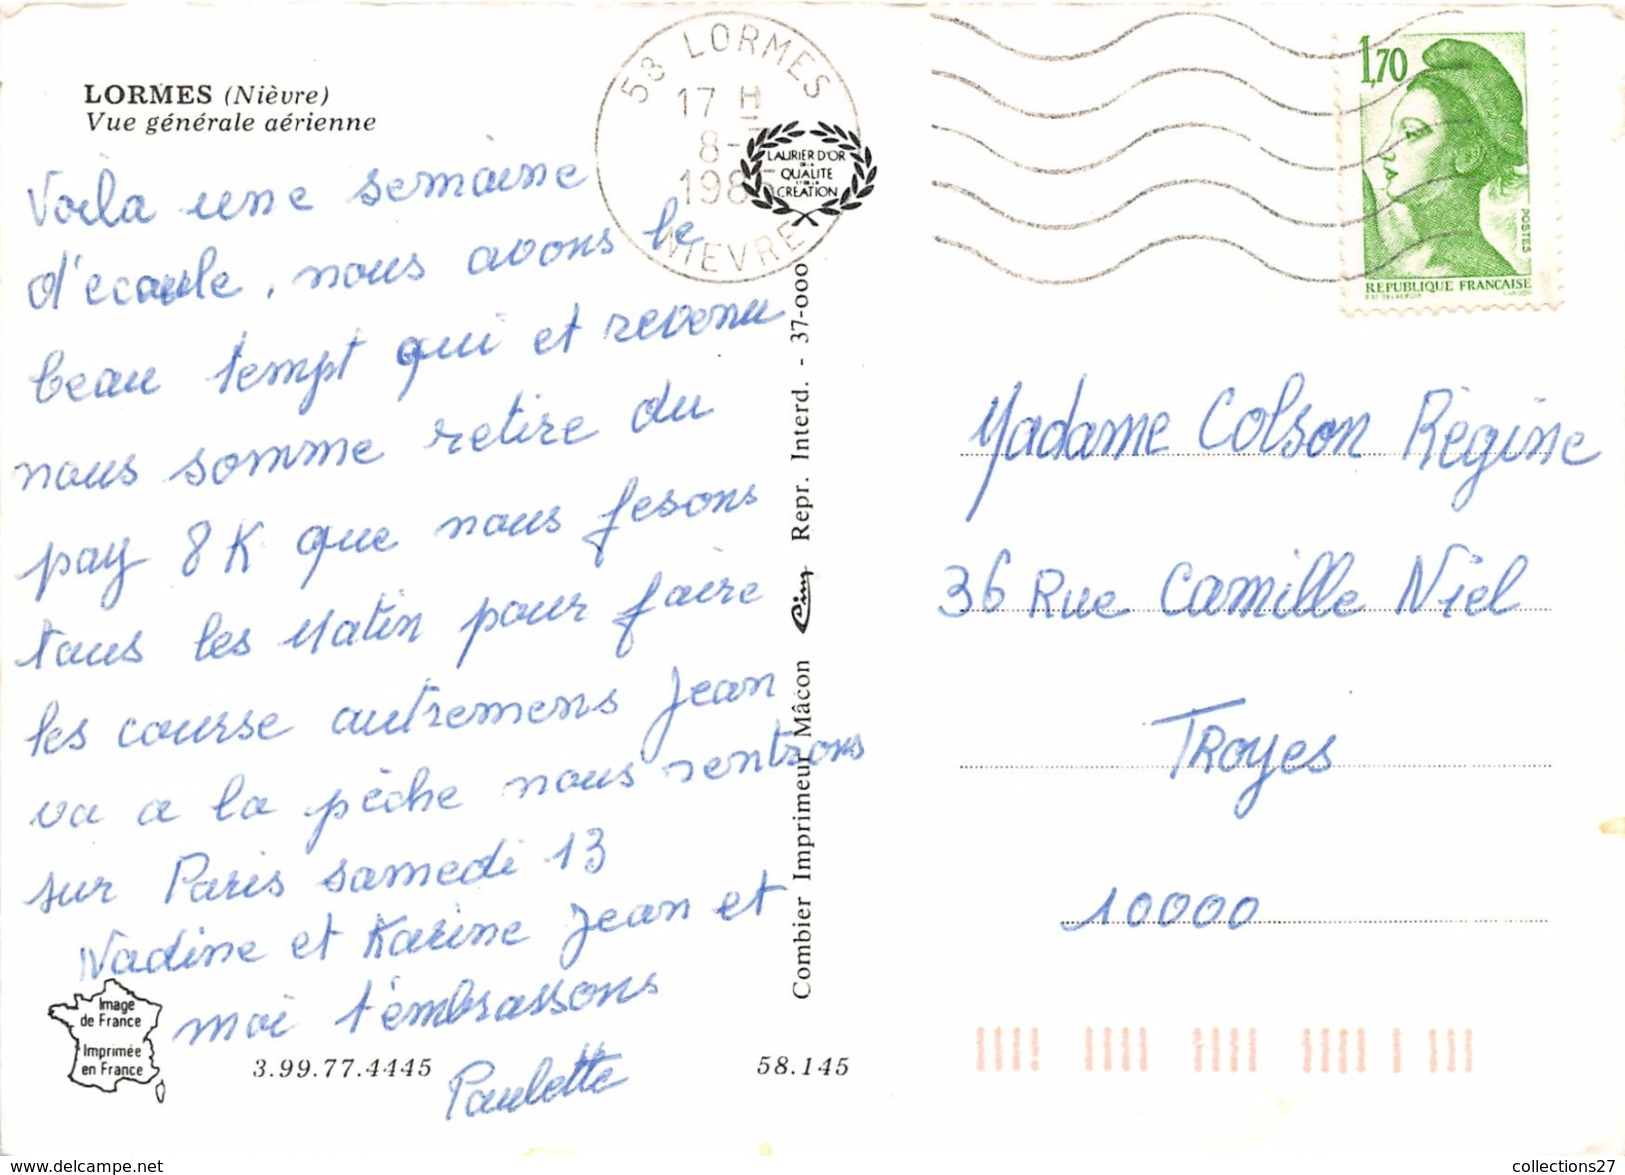 LORMES (Nièvre)
Vue générale aérienne
58 LORMES
17 H
8-
198
NIEVRE
LAURIER D'OR
DE LA
QUALITE
ET DE LA
CREATION
1,70
POSTES
REPUBLIQUE FRANÇAISE
Voila une semaine
d'ecoule, nous avons le
beau tempt qui et revenu
nous somme retire du
pay 8 K que nous fesons
tous les Matin pour faire
les course autremens Jean
va a la pèche nous rentrons
sur Paris samedi 13
Nadine et Karine Jean et
moi t'embrassons
Paulette
Image
de France
Imprimée
en France
3.99.77.4445
58.145
Combier Imprimeur Mâcon Cim Repr. Interd. - 37-000
Madame Colson Règine
36 Rue Camille Niel
TRoyes
10000
http://www.delcampe.net
collections27